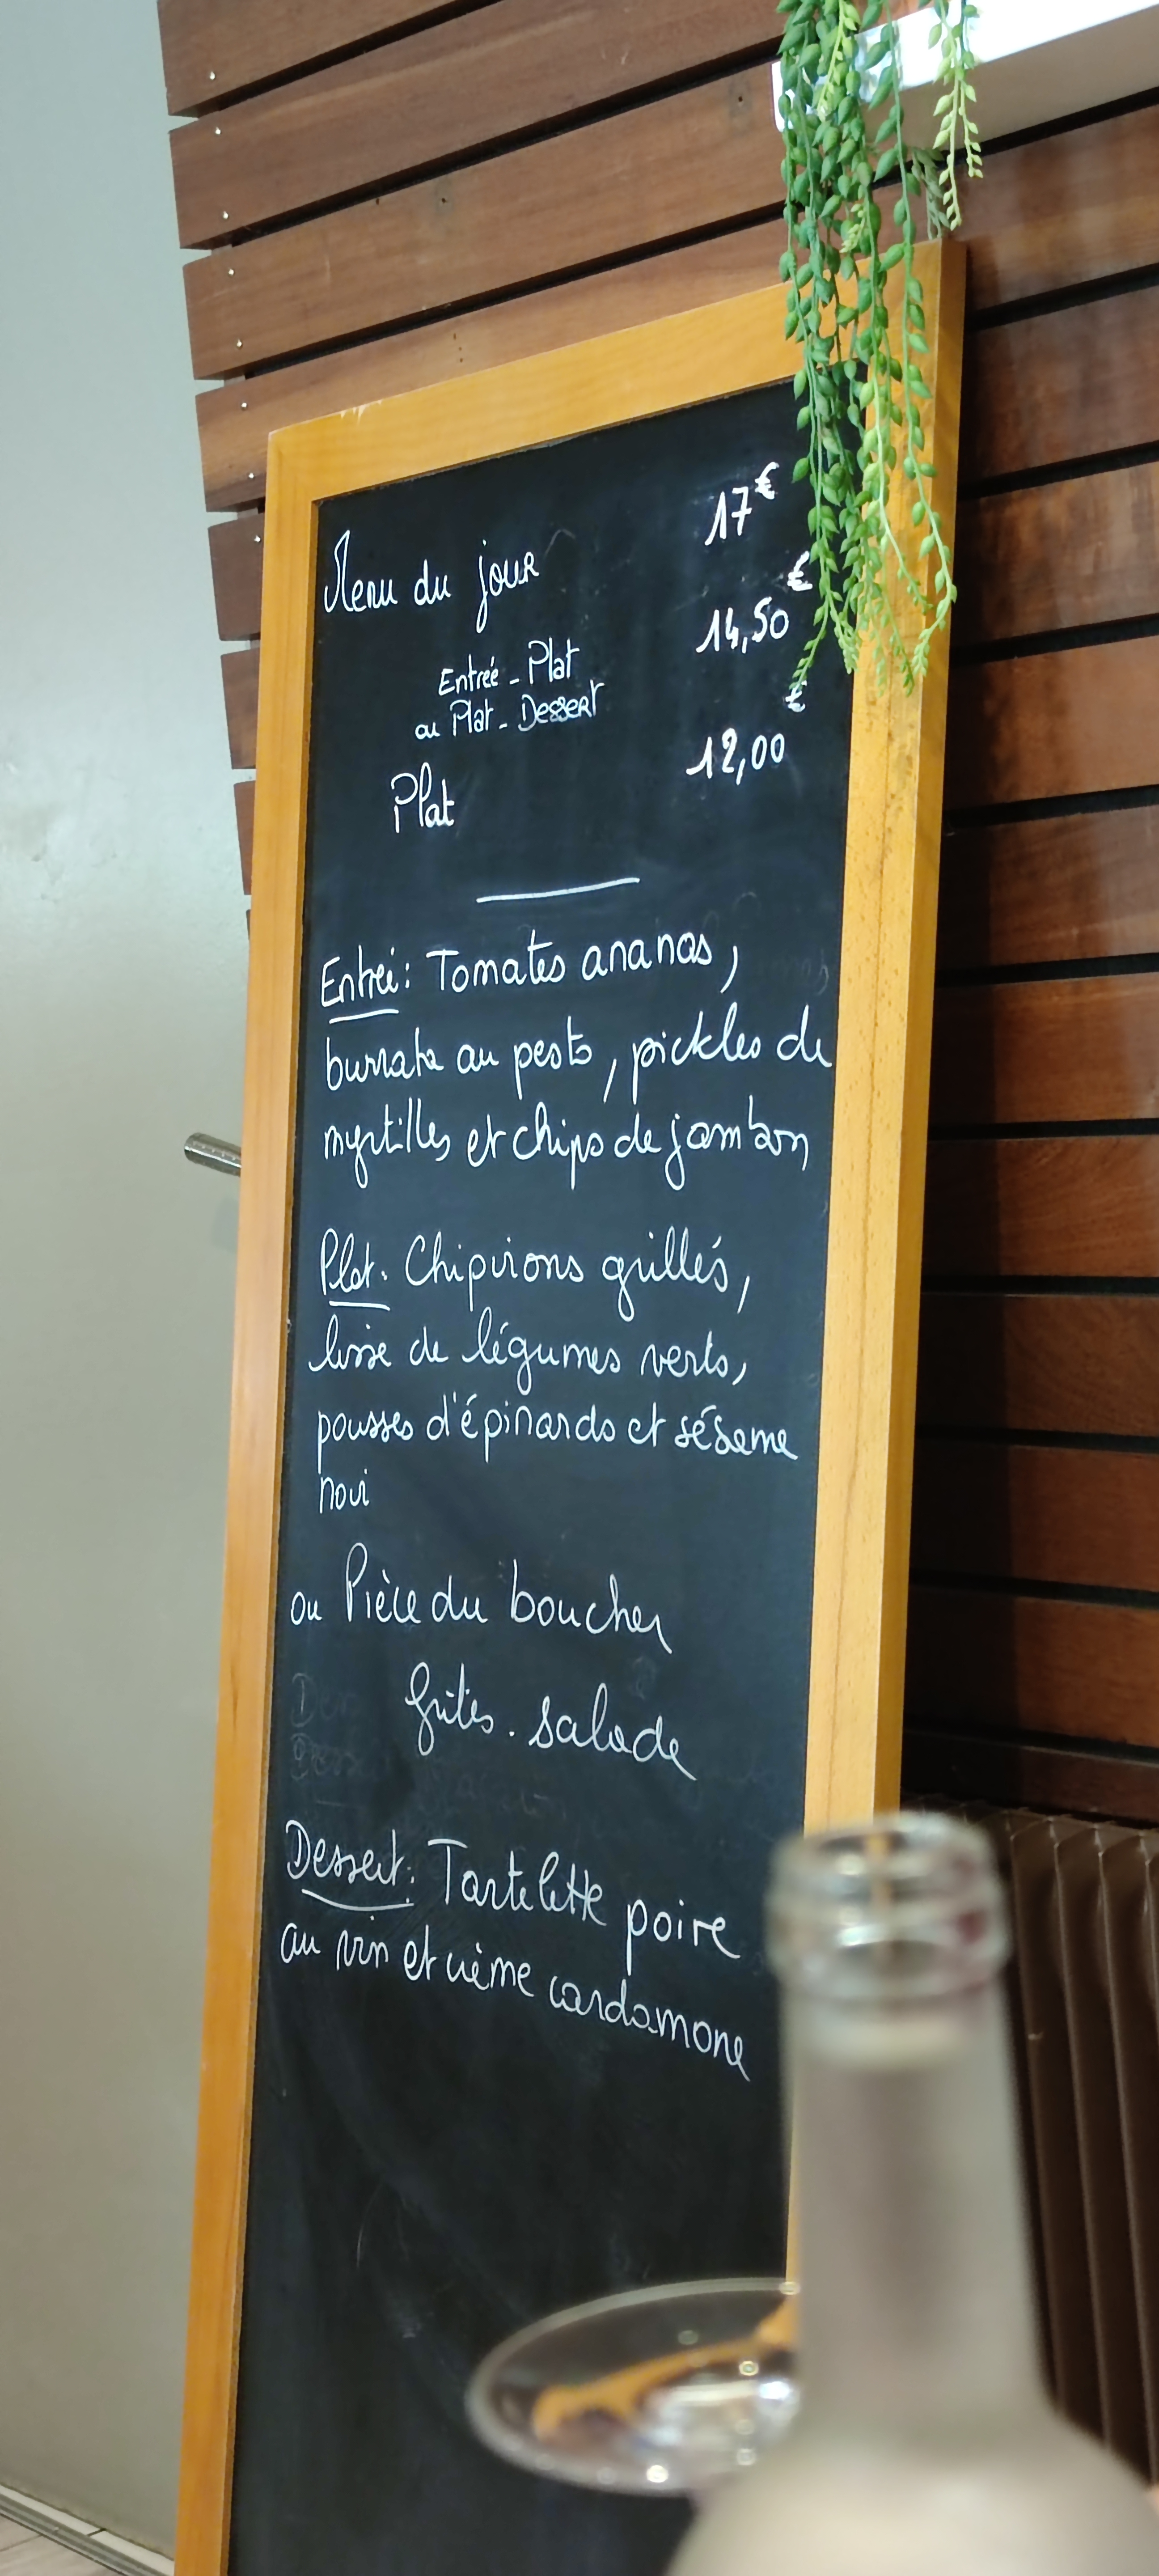 Menu du jour 17€
Entrée - Plat 14,50€
ou Plat - Dessert
Plat 12,00€
Entrée: Tomates ananas,
burrata au pesto, pickles de
myrtilles et chips de jambon
Plat. Chipirons grillés,
lisse de légumes verts,
pousses d'épinards et sésame
noir
ou Pièce du boucher
frites. salade
Dessert: Tartelette poire
au vin et crème cardamone